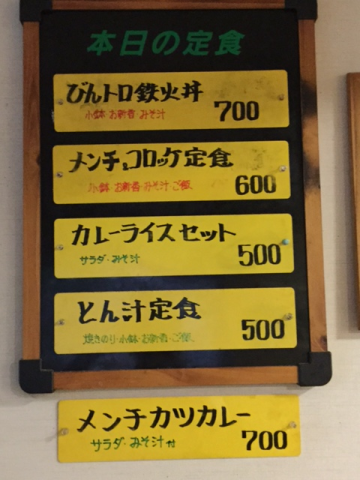 本日の定食
びんトロ鉄火丼
小鉢・お新香・みそ汁
700
メンチ&コロッケ定食
小鉢・お新香・みそ汁・ご飯
600
カレーライスセット
サラダ・みそ汁
500
とん汁定食
焼きのり・小鉢・お新香・ご飯
500
メンチカツカレー
サラダ・みそ汁付
700